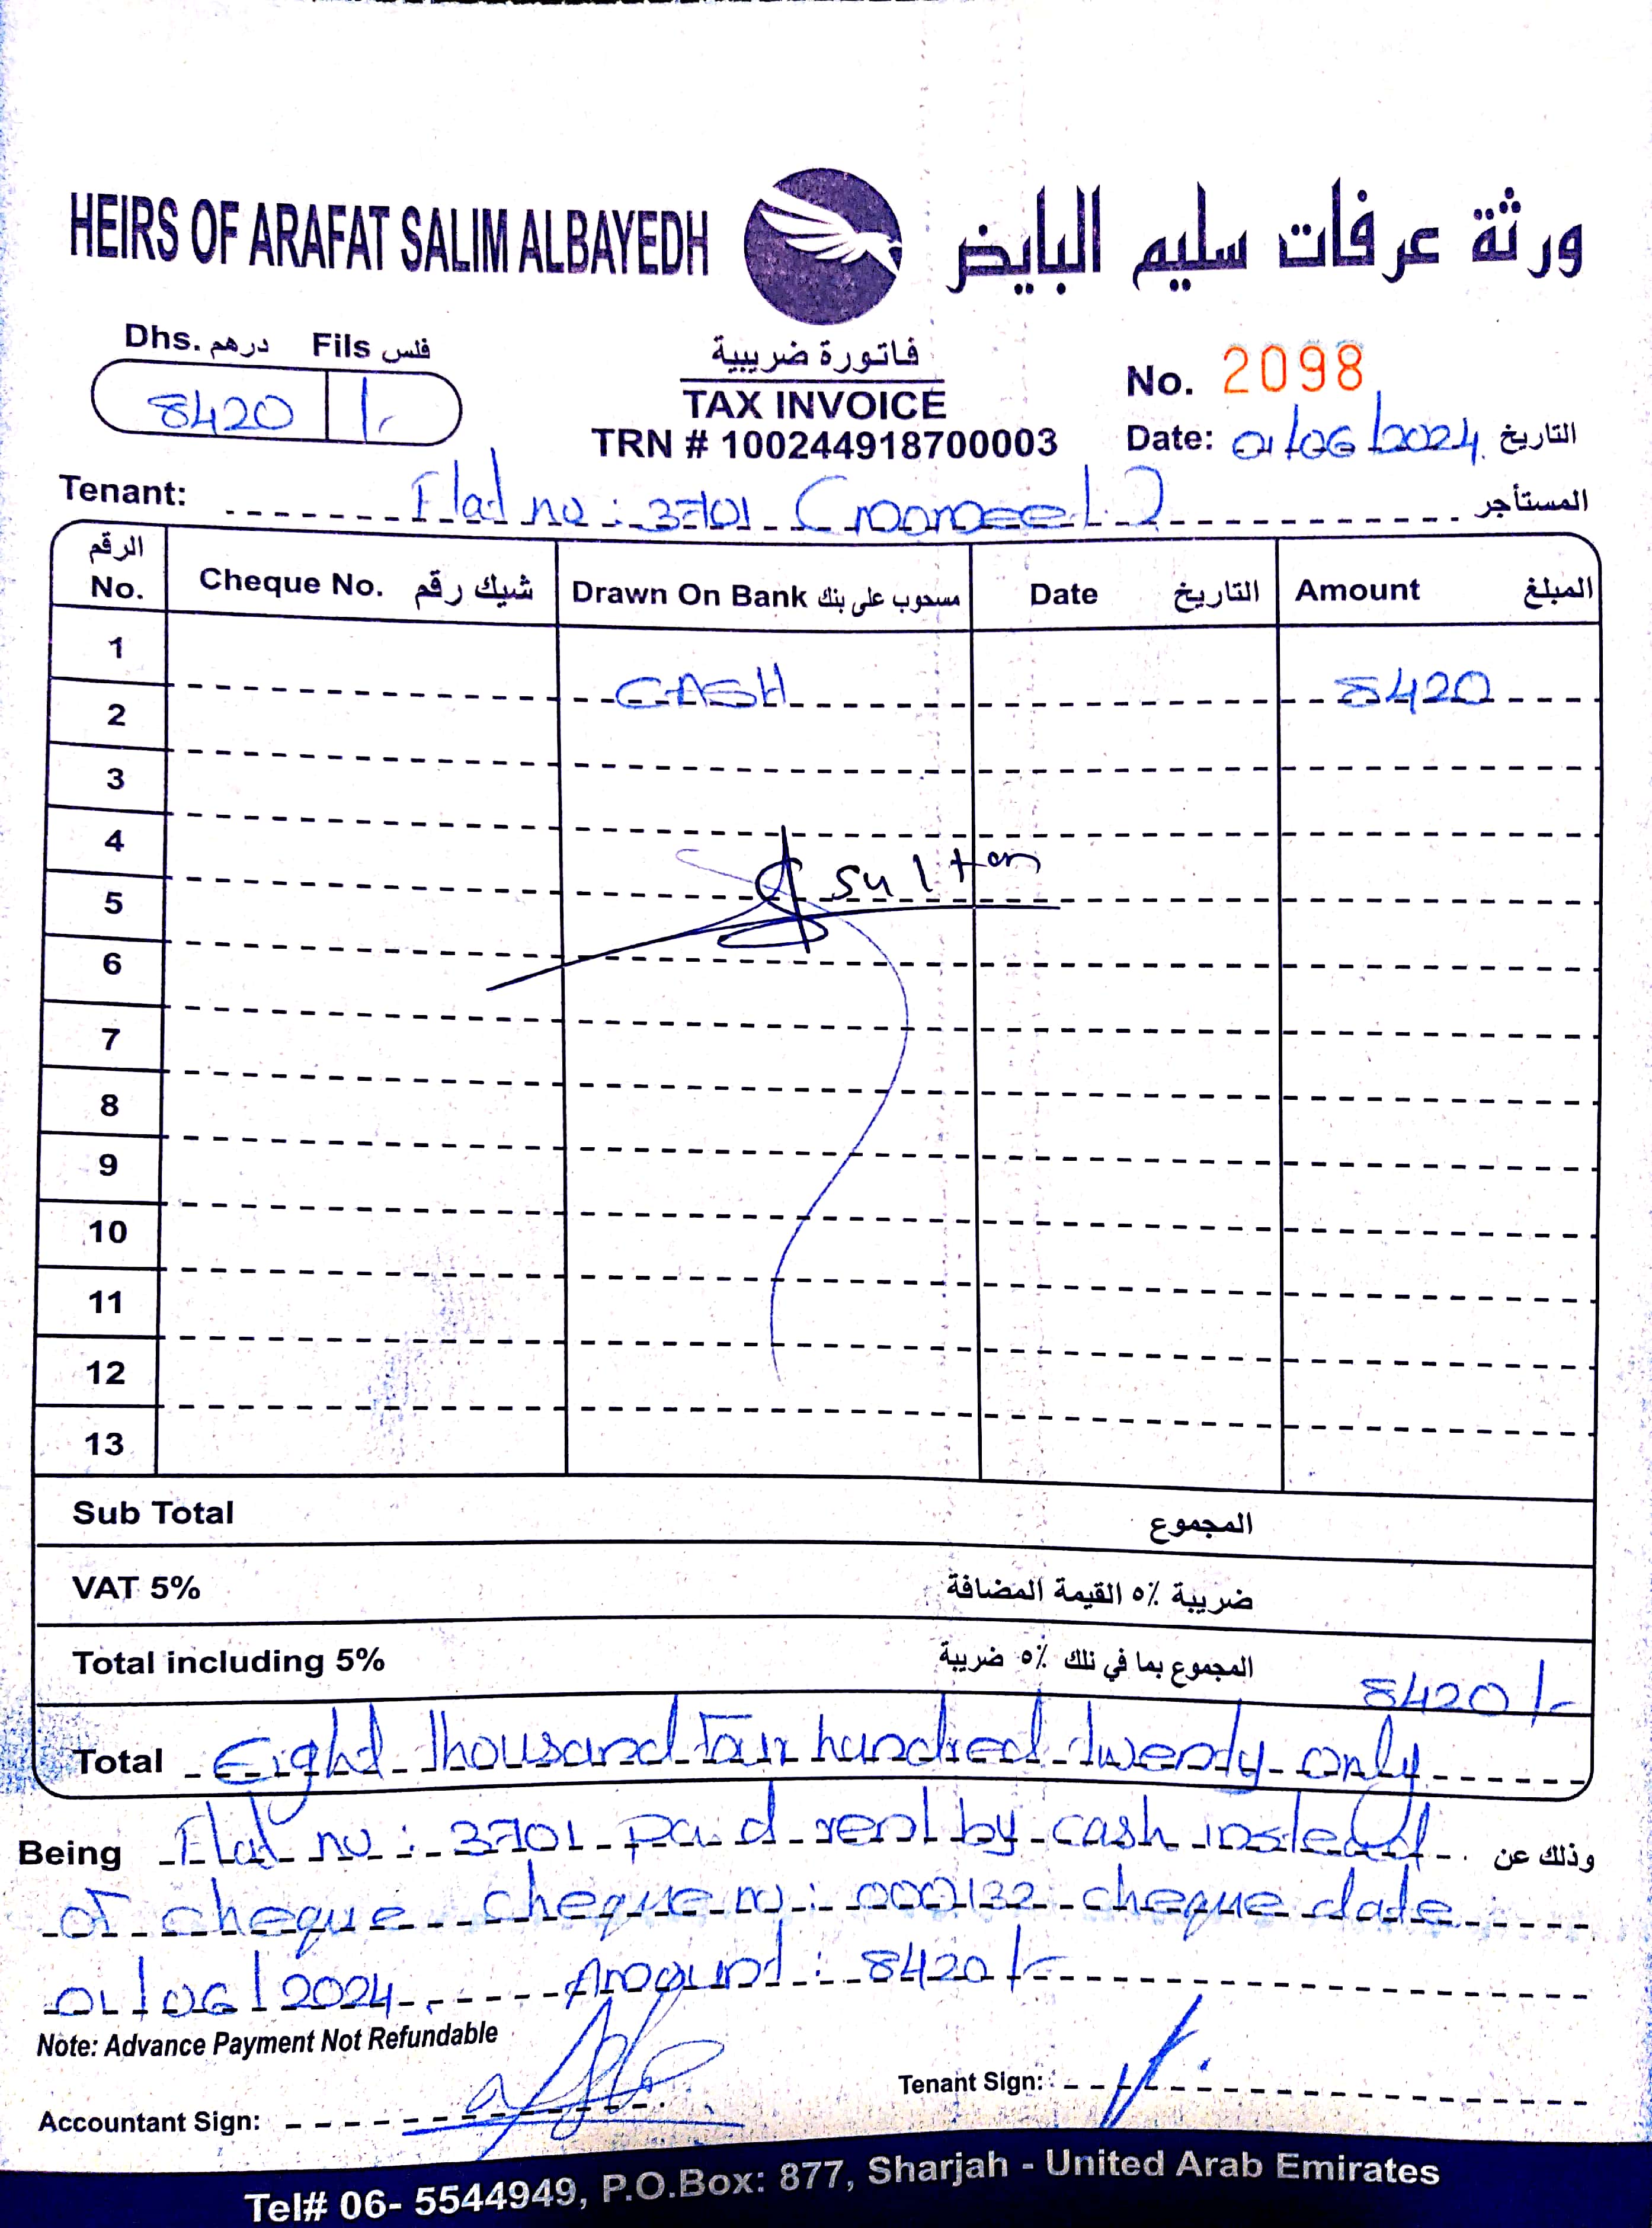 HEIRS OF ARAFAT SALIM ALBAYEDH ورثة عرفات سليم البايض
Dhs. درهم Fils فلس
8420 /-
فاتورة ضريبية
TAX INVOICE
TRN # 100244918700003
No. 2098
Date: 01/06/2024 التاريخ
Tenant: Flat no : 3701 المستأجر
الرقم No. Cheque No. شيك رقم Drawn On Bank مسحوب على بنك Date التاريخ Amount المبلغ
1 CASH 8420
2
3
4
sultan
5
6
7
8
9
10
11
12
13
Sub Total المجموع
VAT 5% ضريبة ٥٪ القيمة المضافة
Total including 5% المجموع بما في ذلك ٥٪ ضريبة 8420/-
Total Eight thousand four hundred twenty only
Being Flat no : 3701 paid rent by cash instead وذلك عن
of cheque cheque no : 000132 cheque date
01/06/2024. Amount : 8420/-
Note: Advance Payment Not Refundable
Tenant Sign:
Accountant Sign:
Tel# 06- 5544949, P.O.Box: 877, Sharjah - United Arab Emirates